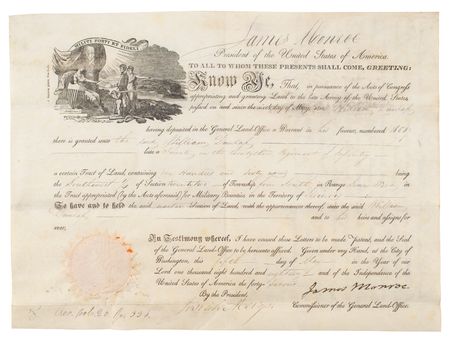 MILITI FORTI ET FIDELI
James Monroe
President of the United States of America.
TO ALL TO WHOM THESE PRESENTS SHALL COME, GREETING:
Know Ye, That, in pursuance of the Acts of Congress
appropriating and granting Land to the late Army of the United States,
passed on and since the sixth day of May, 1812, William
having deposited in the General Land-Office a Warrant in his favour, numbered
there is granted unto the said William
late a in the Regiment of Infantry
a certain Tract of Land, containing one hundred and sixty acres, being
the of Section of Township South in Range
the Tract appropriated (by the Acts aforesaid) for Military Bounties in the Territory of
To have and to hold the said quarter Section of Land, with the appurtenances thereof, unto the said William
and to his heirs and assigns for
ever,
In Testimony whereof, I have caused these Letters to be made Patent, and the Seal
of the General Land-Office to be hereunto affixed. Given under my Hand, at the City of
Washington, this day of in the Year of our
Lord one thousand eight hundred and and of the Independence of the
United States of America the forty-
By the President,
James Monroe
Commissioner of the General Land-Office.